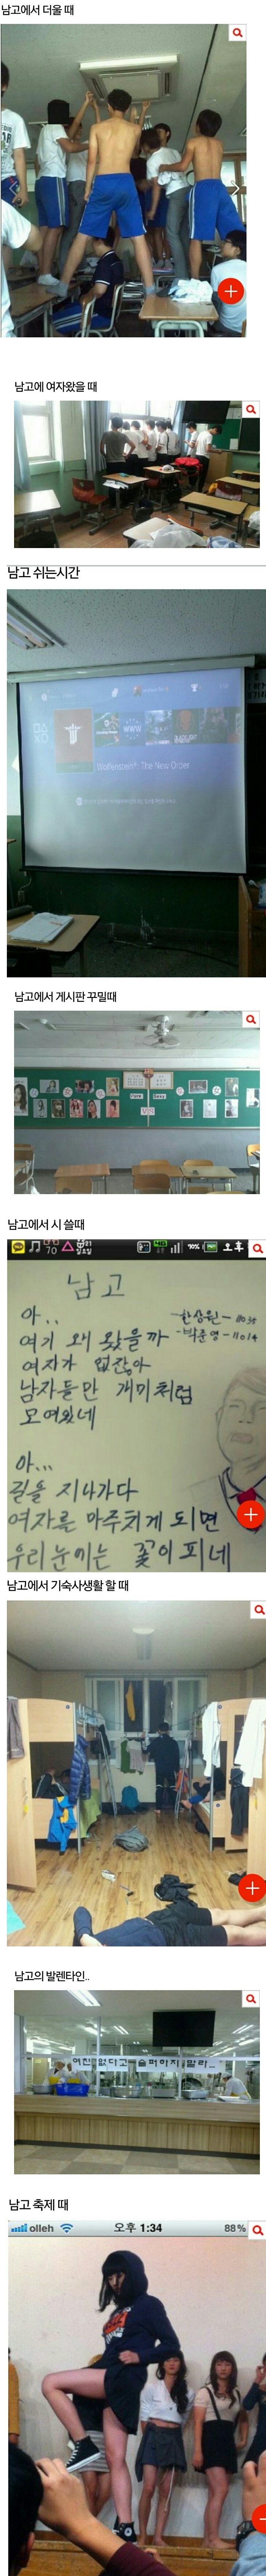 남고에서 더울 때
남고에 여자왔을 때
남고 쉬는시간
Wolfenstein®: The New Order
남고에서 게시판 꾸밀때
Pure
Sexy
VS
남고에서 시 쓸때
70
90%
오후
남고
아..
여기 왜 왔을까
여자가 없잖아
남자들만 개미처럼
모여있네
-한상원- 11035
-박준영- 11014
아...
길을 지나가다
여자를 마주치게 되면
우리 눈에는 꽃이 피네
남고에서 기숙사생활 할 때
남고의 발렌타인..
여친 없다고 슬퍼하지 말라_
남고 축제 때
olleh
오후 1:34
88%